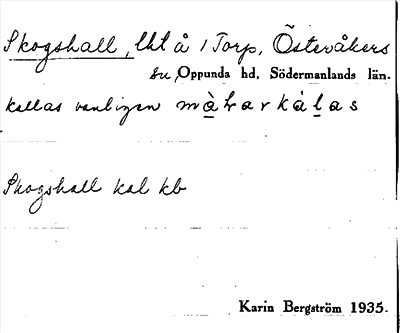 Skogshall, lht å 1 Torp, Östervåkers
sn, Oppunda hd, Södermanlands län.
kallas vanligen màtarkálas
Skogshall kal kb
Karin Bergström 1935.